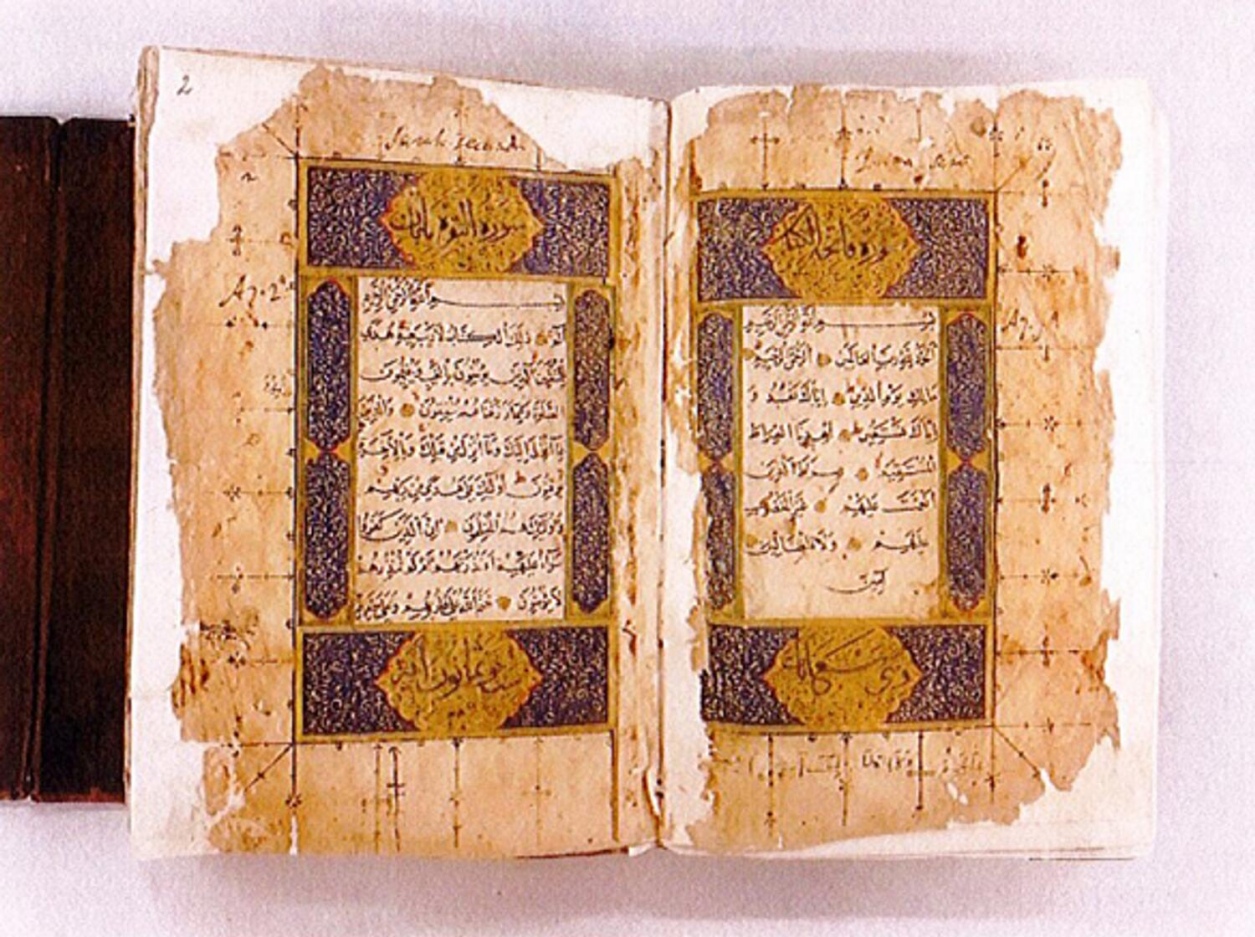 سورة فاتحة الكتاب
بسم الله الرحمن الرحيم
الحمد لله رب العالمين الرحمن الرحيم
مالك يوم الدين اياك نعبد و
اياك نستعين اهدنا الصراط
المستقيم صراط الذين
انعمت عليهم غير المغضوب
عليهم ولا الضالين
آمين
وهي سبع آيات
2
سورة البقرة مايتان
بسم الله الرحمن الرحيم
الم ذلك الكتاب لا ريب فيه هدى
للمتقين الذين يؤمنون بالغيب ويقيمون
الصلوة ومما رزقناهم ينفقون والذين
بما انزل اليك وما انزل من قبلك وبالآخرة
يوقنون اولئك على هدى من ربهم
واولئك هم المفلحون ان الذين كفروا
سواء عليهم أأنذرتهم ام لم تنذرهم
لا يؤمنون ختم الله على قلوبهم وعلى سمعهم
ست وثمانون آية